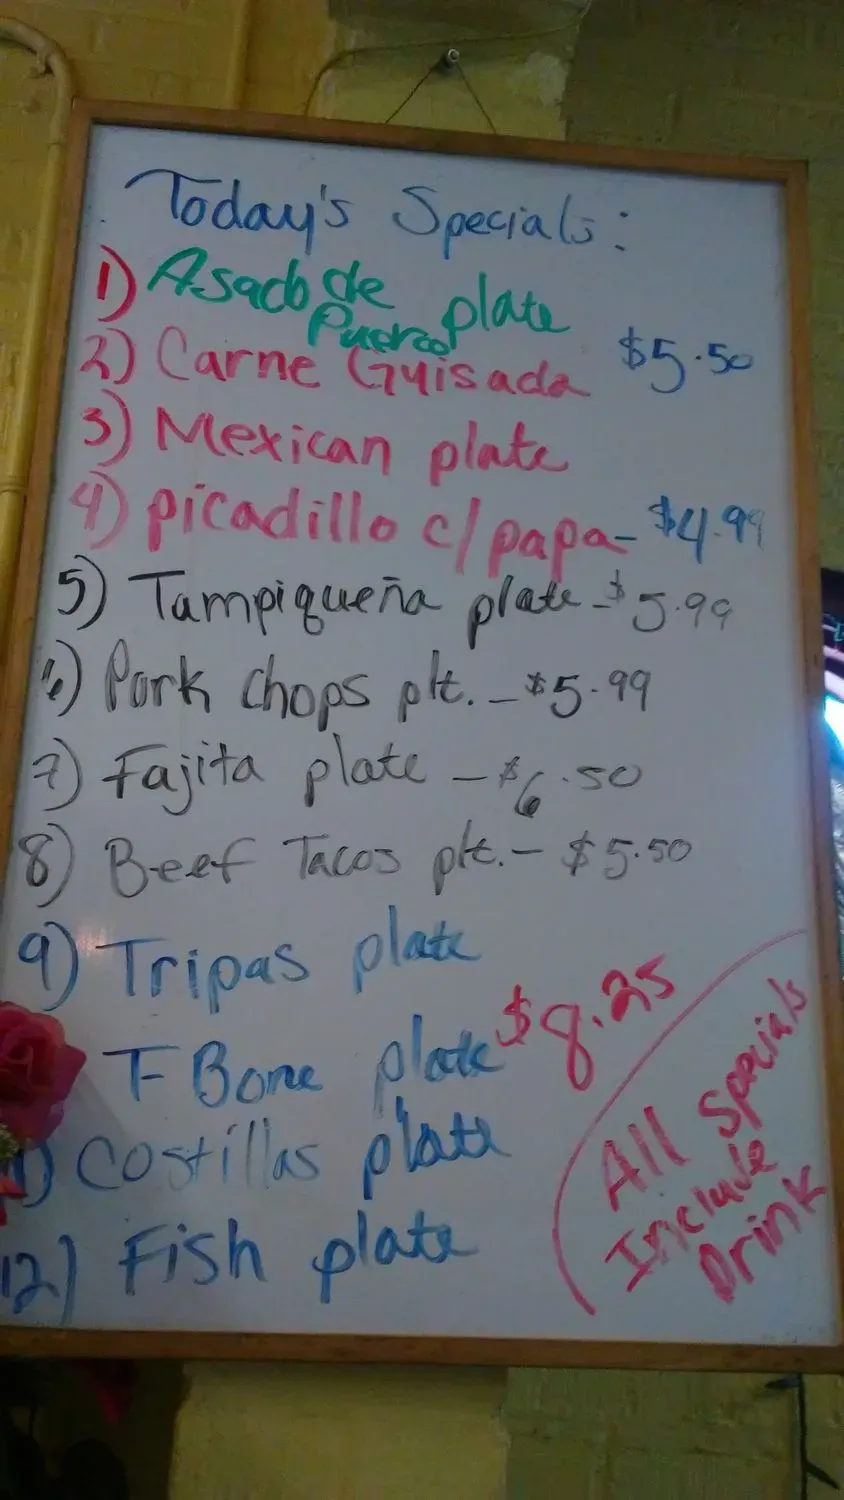 Today's Specials:
1) Asado de Puerco plate
2) Carne Guisada $5.50
3) Mexican plate
4) picadillo c/papa - $4.99
5) Tampiqueña plate - $5.99
6) Pork Chops plt. - $5.99
7) Fajita plate - $6.50
8) Beef Tacos plt. - $5.50
9) Tripas plate
T-Bone plate $8.25
11) Costillas plate
12) Fish plate
All Specials
Include
Drink